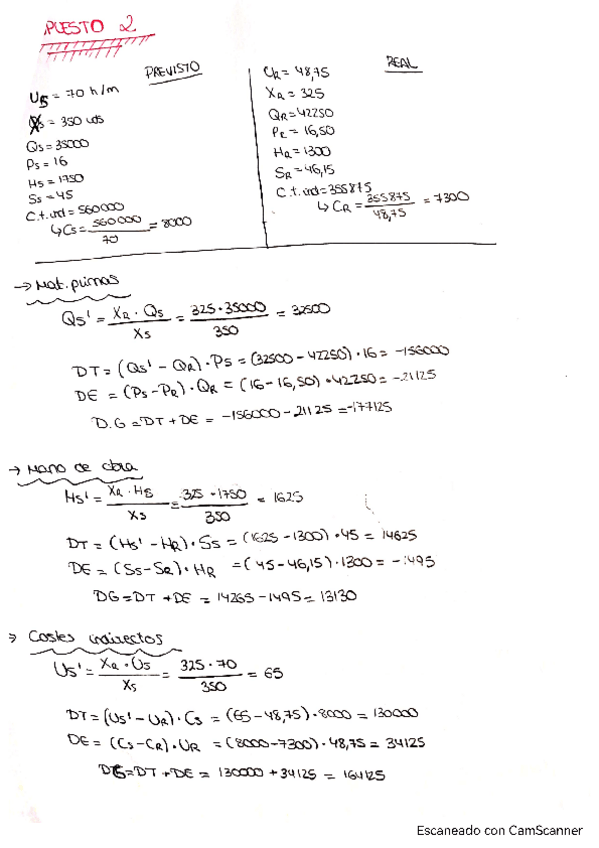 PUESTO 2
PREVISTO
Us = 70 h/m
Xs = 350 uds
Qs = 35000
Ps = 16
Hs = 1750
Ss = 45
C.t.ind = 560000
↳ Cs = 560000 / 70 = 8000
REAL
UR = 48,75
XR = 325
QR = 42250
PR = 16,50
HR = 1300
SR = 46,15
C.t.ind = 355875
↳ CR = 355875 / 48,75 = 7300
→ Mat. primas
Qs' = XR · Qs / Xs = 325 · 35000 / 350 = 32500
DT = (Qs' - QR) · Ps = (32500 - 42250) · 16 = -156000
DE = (Ps - PR) · QR = (16 - 16,50) · 42250 = -21125
D.G = DT + DE = -156000 - 21125 = -177125
→ Mano de obra
Hs' = XR · Hs / Xs = 325 · 1750 / 350 = 1625
DT = (Hs' - HR) · Ss = (1625 - 1300) · 45 = 14625
DE = (Ss - SR) · HR = (45 - 46,15) · 1300 = -1495
DG = DT + DE = 14265 - 1495 = 13130
→ Costes indirectos
Us' = XR · Us / Xs = 325 · 70 / 350 = 65
DT = (Us' - UR) · Cs = (65 - 48,75) · 8000 = 130000
DE = (Cs - CR) · UR = (8000 - 7300) · 48,75 = 34125
DG = DT + DE = 130000 + 34125 = 164125
Escaneado con CamScanner